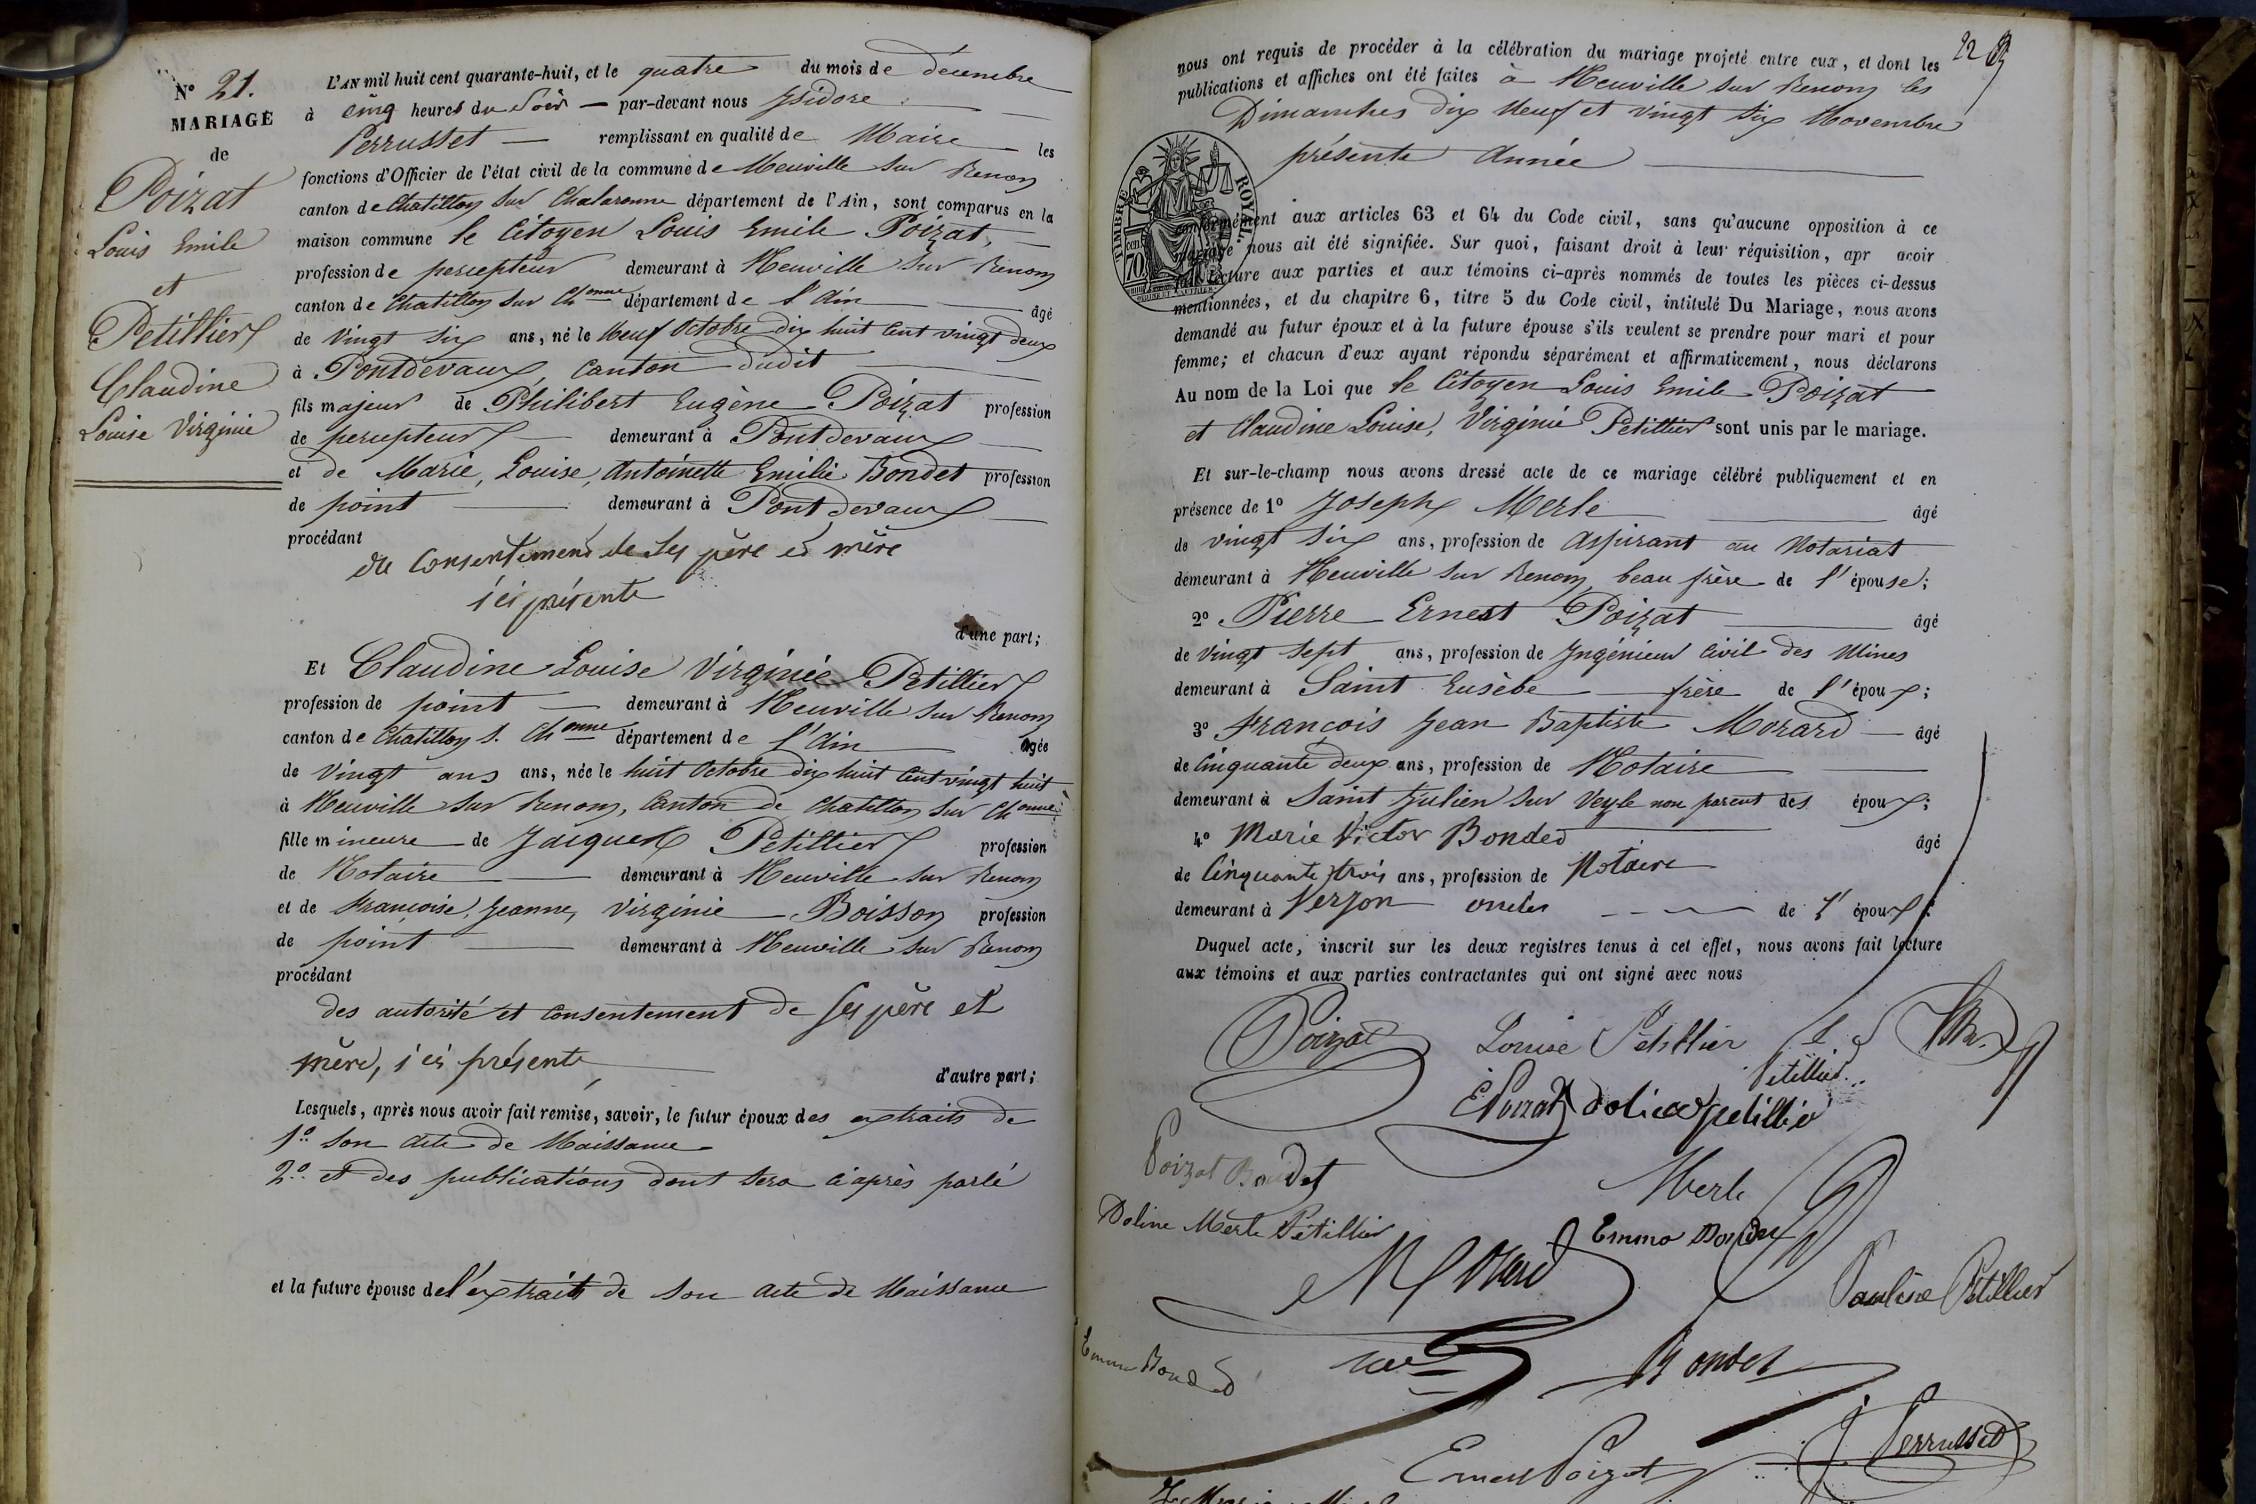 N° 21.
MARIAGE
de
Poizat
Louis Emile
et
Petillier
Claudine
Louise Virginie
L'AN mil huit cent quarante-huit, et le quatre du mois de décembre
à cinq heures du Soir — par-devant nous Isidore
Perrusset — remplissant en qualité de Maire les
fonctions d'Officier de l'état civil de la commune de Neuville sur Renon
canton de Chatillon sur Chalaronne département de l'Ain, sont comparus en la
maison commune le Citoyen Louis Emile Poizat,
profession de percepteur demeurant à Neuville sur Renon
canton de Chatillon sur Ch.onne département de l'Ain âgé
de vingt six ans, né le neuf Octobre dix huit cent vingt deux
à Pontdevaux, canton dudit
fils majeur de Philibert Eugène Poizat profession
de percepteur demeurant à Pontdevaux
et de Marie, Louise, Antoinette Emilie Bondet profession
de point demeurant à Pontdevaux
procédant
du consentement de ses père et mère
ici présents
d'une part;
Et Claudine Louise Virginie Petillier
profession de point demeurant à Neuville sur Renon
canton de Chatillon s. Ch.onne département de l'Ain âgée
de vingt ans ans, née le huit Octobre dix huit cent vingt huit
à Neuville sur Renon, canton de Chatillon sur Ch.onne
fille mineure de Jacques Petillier profession
de Notaire demeurant à Neuville sur Renon
et de Françoise, Jeanne, Virginie Boisson profession
de point demeurant à Neuville sur Renon
procédant
des autorité et consentement de ses père et
mère, ici présents
d'autre part;
Lesquels, après nous avoir fait remise, savoir, le futur époux des extraits de
1° son acte de Naissance
2° et des publications dont sera ci après parlé
et la future épouse de l'extrait de son acte de Naissance
22
nous ont requis de procéder à la célébration du mariage projeté entre eux, et dont les
publications et affiches ont été faites à Neuville sur Renon les
Dimanches dix neuf et vingt six Novembre
présente Année
TIMBRE ROYAL.
70
conformément aux articles 63 et 64 du Code civil, sans qu'aucune opposition à ce
mariage nous ait été signifiée. Sur quoi, faisant droit à leur réquisition, apr avoir
fait lecture aux parties et aux témoins ci-après nommés de toutes les pièces ci-dessus
mentionnées, et du chapitre 6, titre 5 du Code civil, intitulé Du Mariage, nous avons
demandé au futur époux et à la future épouse s'ils veulent se prendre pour mari et pour
femme; et chacun d'eux ayant répondu séparément et affirmativement, nous déclarons
Au nom de la Loi que le Citoyen Louis Emile Poizat
et Claudine Louise, Virginie Petillier sont unis par le mariage.
Et sur-le-champ nous avons dressé acte de ce mariage célébré publiquement et en
présence de 1° Joseph Merle âgé
de vingt six ans, profession de Aspirant au Notariat
demeurant à Neuville sur Renon beau frère de l'épouse;
2° Pierre Ernest Poizat âgé
de vingt sept ans, profession de Ingénieur Civil des Mines
demeurant à Saint Eusèbe frère de l'époux;
3° François Jean Baptiste Morard âgé
de Cinquante deux ans, profession de Notaire
demeurant à Saint Julien sur Veyle non parent des époux;
4° Marie Victor Bondet âgé
de Cinquante trois ans, profession de Notaire
demeurant à Verjon oncles de l'époux;
Duquel acte, inscrit sur les deux registres tenus à cet effet, nous avons fait lecture
aux témoins et aux parties contractantes qui ont signé avec nous
Poizat Louise Petillier
Petillier
E Poizat
Poizat Bondet Merle
Doline Merle Petillier Emma Bondet
Morard Pauline Petillier
Emma Bondet Bondet
Ernest Poizat J. Perrusset